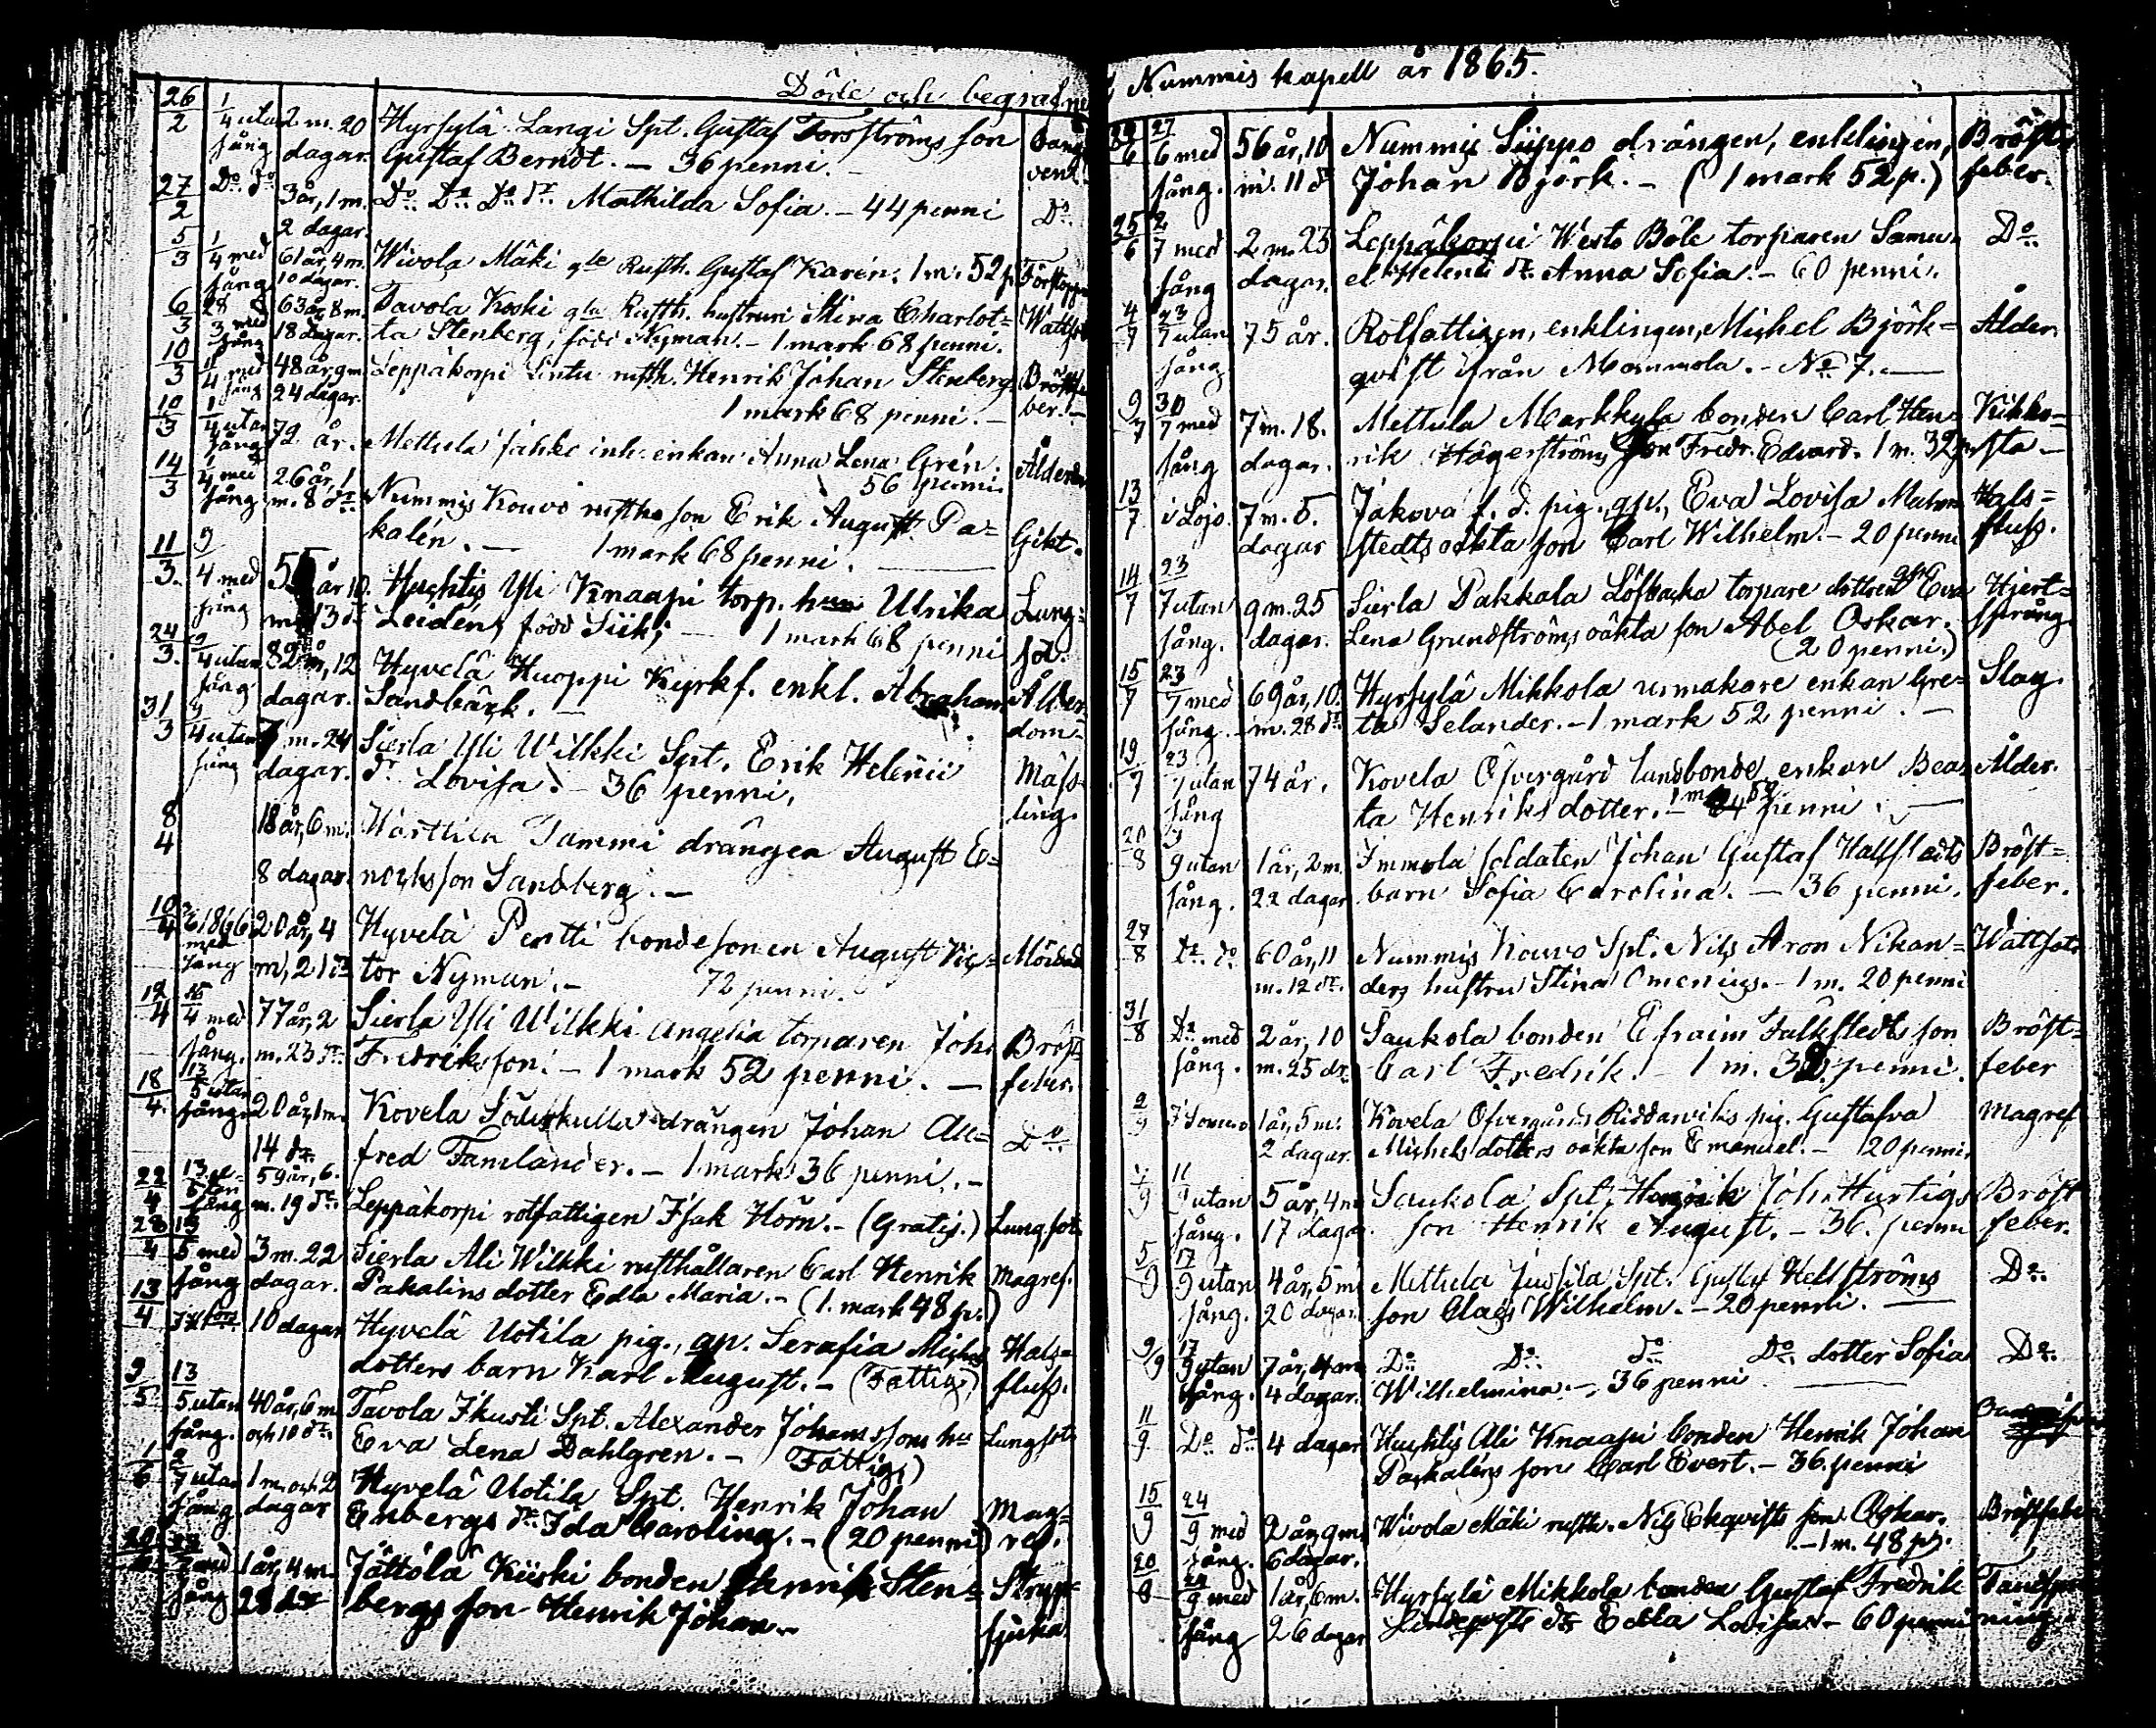 Döde och begrafne i Nummis kapell år 1865.
26/2 1/4 utan sång 2 m. 20 dagar. Hyrsylä Langi Spt. Gustaf Forsströms son
Gustaf Berndt. — 36 penni.
27/2 Do do 3 år, 1 m. 2 dagar. Do Do Do dr. Mathilda Sofia. — 44 penni Do
5/3 1/4 med sång 61 år, 4 m. 10 dagar. Wivola Mäki gle Rusth. Gustaf Karén. 1 m. 52 p.
6/3 28/3 med sång 63 år 8 m. 18 dagar. Tavola Koski gla Rusth. hustrun Stina Charlot= Wattsot
ta Stenberg, född Nyman. — 1 mark 68 penni.
10/3 1/4 med sång 48 år, 9 m. 24 dagar. Leppäkorpi Lintu rusth. Henrik Johan Stenberg. Bröstfe
1 mark 68 penni. — ber. —
10/3 1/4 utan sång 72 år. Mettula Jahke inh. enkan Anna Lena Grén. Ålderd.
56 penni.
14/3 1/4 med sång 26 år, 1 m. 8 dr. Nummis Kouvo rusth. son Erik August Pa=
kalén. — 1 mark 68 penni. Gikt.
11/3. 9/4 med sång år 10 m. 13 d. Huhtis Yli Knaapi torp. hu Ulrika Lung=
Leidén, född Siik; — 1 mark 68 penni sot.
24/3. 9/4 utan sång 82 år, 12 dagar. Hyvelä Huoppi Kyrkf. enkl. Abraham Ålder
Sandbäck. — dom.
31/3 9/4 utan sång 7 m. 24 dagar. Sierla Yli Wilkki Spt. Erik Helenii Mäss
dr Lovisa. — 36 penni. ling.
8/4 18 år, 6 m. 8 dagar. Warttila Tammi drängen August E=
nochsson Sandberg. —
10/4 1866 med sång 20 år, 4 m, 21 dr Hyvelä Pentti bondesonen August Vic= Mördad
tor Nyman. — 72 penni.
12/4 15/4 med sång. 77 år, 2 m. 23 dr. Sierla Yli Wilkki Angelia torparen Joh. Bröst
Fredriksson. — 1 mark 52 penni. — feber.
18/4. 13/5 utan sång 20 år, 1 m. 14 dr. Kovela Söderkulla drängen Johan Alf= Do
fred Tamlander. — 1 mark 36 penni. —
22/4 13/5 utan sång 59 år, 6. m. 19 dr. Leppäkorpi rotfattigen Isak Horn. — (Gratis.) Lungsot
28/4 5 med sång 3 m. 22 dagar. Sierla Ali Wilkki rusthållaren Carl Henrik Magref.
Pakalins dotter Edla Maria. — (1 mark 48 p.)
13/4 10 dagar Hyvelä Uotila pig., gp. Serafia Michels Hals=
dotters barn Karl August. — (Fattig) fluss.
9/5 13/5 utan sång. 40 år, 6 m. och 10 dr. Tavola Ikusti Spt. Alexander Johanssons hu Lungsot
Eva Lena Dahlgren. — Fattig)
1/6 2/7 utan sång 1 m. och 2 dagar Hyvelä Uotila Spt. Henrik Johan Mag=
Enbergs dr. Ida Carolina. — (20 penni) ref.
med sång 1 år, 4 m. 28 dr Jättölä Kiiski bonden Henrik Sten= Stryp=
bergs son Henrik Johan. — sjuka
6 27/6 med sång. 56 år, 10 m. 11 dr Nummis Siippo drängen, enklingen, Bröst
Johan Björk. — (1 mark 52 p.) feber.
25/6 2/7 med sång 2 m. 23 dagar. Leppäkorpi Westo Böle torparen Samu= Do.
el Helenii dr. Anna Sofia. — 60 penni.
4/7 23/7 utan sång 75 år. Rotfattigen, enklingen, Michel Björk= Ålder.
qvist ifrån Mommola. — No 7. —
9/7 30/7 med sång 7 m. 18. dagar. Mettula Markkula bonden Carl Hen= Kikho=
rik Hägerströms son Fredr. Edvard. 1 m. 32 p. sta —
13/7 i Lojo. 7 m. 5. dagar Jakova f. d. pig., gp., Eva Lovisa Malm Hals=
stedts oäkta son Carl Wilhelm. — 20 penni fluss.
14/7 23/7 utan sång. 9 m. 25 dagar. Sierla Pakkala Löfbacka torpare dottren gp. Eva Hjert=
Lena Grundströms oäkta son Abel Oskar. språng.
(20 penni.)
15/7 23/7 med sång. 69 år, 10. m. 28 dr Hyrsylä Mikkola urmakare enkan Gre= Slag.
ta Selander. — 1 mark 52 penni. —
19/7 23/7 utan sång 74 år. Kovela Öfvergård landbonde enkan Bea= Ålder.
ta Henriksdotter. — penni. —
20/8 3/9 utan sång. 1 år, 2 m. 22 dagar Immola soldaten Johan Gustaf Hallstedts Bröst=
barn Sofia Carolina. — 36 penni. feber.
27/8 Do. do 60 år, 11 m. 12 dr. Nummis Kouvo Spt. Nils Aron Nikan= Wattsot.
ders hustru Stina Omenius. — 1 m. 20 penni
31/8 Do med sång. 2 år, 10 m. 25 dr. Saukola bonden Efraim Falkstedts son Bröst=
Carl Fredrik. — 1 m. penni. feber
2/9 I Somero 1 år, 5 m. 2 dagar. Kovela Öfvergårds Riddarviks pig. Gustafva Magref
Michelsdotters oäkta son Emanuel. — 20 penni.
9 11/9 utan sång. 5 år, 4 m 17 dagar. Saukola Spt. Henrik Joh. Hurtigs Bröst
son Henrik August. — 36 penni feber.
5/9 17/9 utan sång. 4 år, 5 m 20 dagar. Mettula Jussila Spt. Gustaf Hellströms Do.
son Claës Wilhelm. — 20 penni. —
9/9 17/9 utan sång. 7 år, 4 m 4 dagar. Do Do do Do. dotter Sofia Do.
Wilhelmina. — 36 penni
11/9 Do do 4 dagar. Huhtis Ali Knaapi bonden Henrik Johan
Pakalins son Carl Evert. — 36 penni
15/9 24/9 med sång. 2 år, 9 m. 6 dagar. Wivola Mäki rusth. Nils Ekqvists son Oskar. Bröstfeber
— 1 m. 48 p.
20 24/9 med sång 1 år, 6 m. 26 dagar Hyrsylä Mikkola bonden Gustaf Fredrik Tandspric
Lindqvists dr Edla Lovisa. — 60 penni ning.